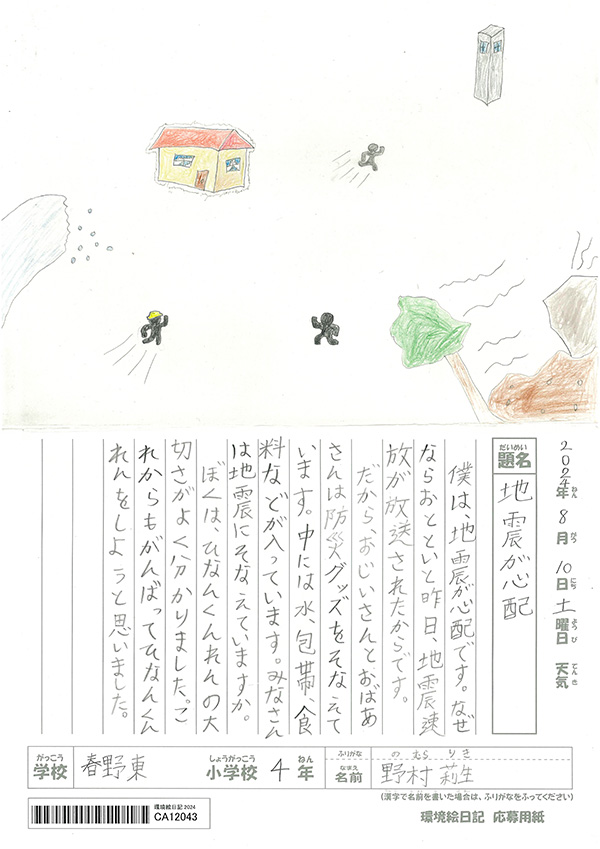 2024年ねん 8月がつ 10日にち 土曜日ようび 天気てんき
題名だいめい 地震が心配
僕は、地震が心配です。なぜ
ならおとといと昨日、地震速
放が放送されたからです。
だから、おじいさんとおばあ
さんは防災グッズをそなえて
います。中には水、包帯、食
料などが入っています。みなさん
は地震にそなえていますか。
ぼくは、ひなんくんれんの大
切さがよく分かりました。こ
れからもがんばってひなんくん
れんをしようと思いました。
がっこう しょうがっこう ねん ふりがな のむら りさ
学校 春野東 小学校 4年 なまえ 名前 野村 莉生
(漢字で名前を書いた場合は、ふりがなをふってください)
環境絵日記2024
CA12043
環境絵日記 応募用紙